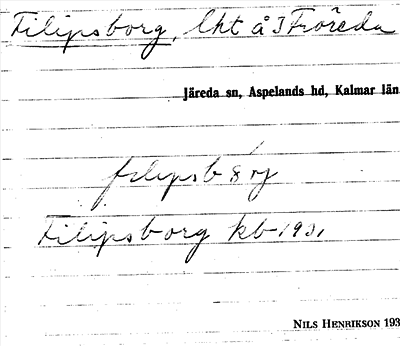 Filipsborg, lht å 3 Fröreda
Järeda sn, Aspelands hd, Kalmar län
filipsb
Filipsborg kb 1931
NILS HENRIKSON 193